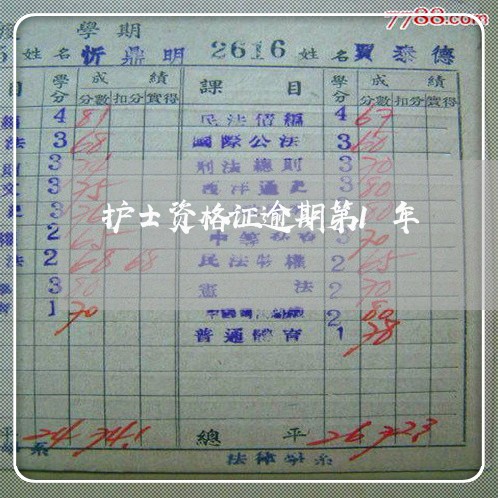 7788.com
學期
姓名 忻鼎明 2616 姓名 賈泰德
目 學分 成績 課目 學分 成績
分數 扣分 實得 分數 扣分 實得
4 81 民法債編 4 67
法 3 68 國際公法 3 60
3 刑法總則 3 70
3 75 西洋通史 3 80
护士资格证逾期第1年
2 70
法 2 68 68 民法物權 2 65
3 80 憲法 2 70
1 70 2 80
普通體育 1 78
平 24 74.1 總平 26 72.3
系 法律學系